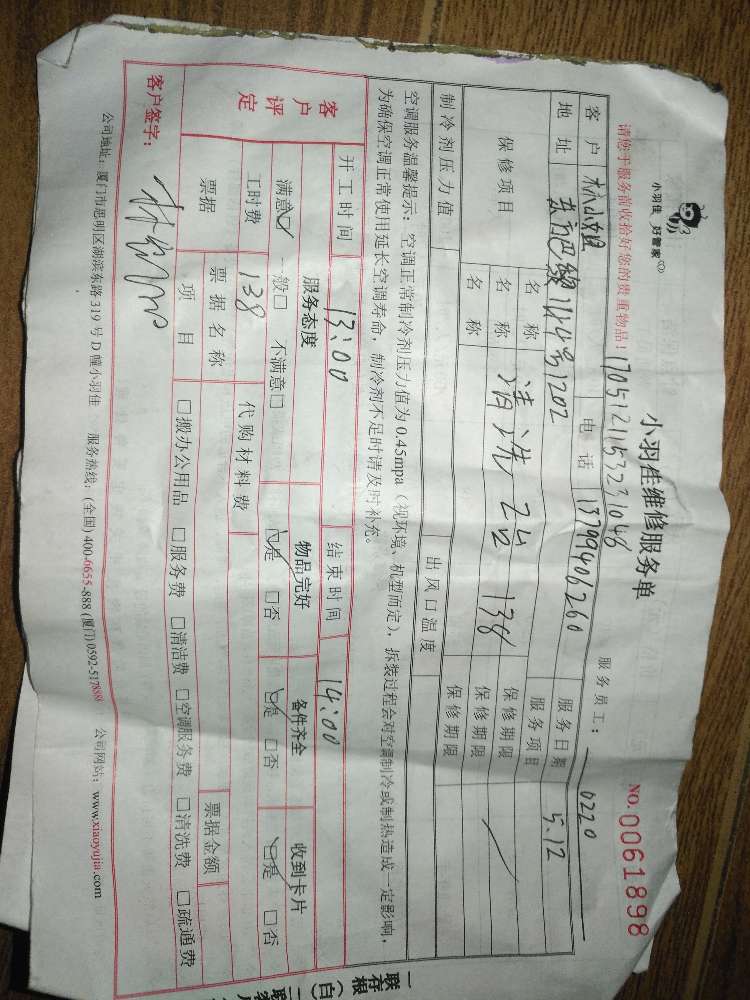 小羽佳 好管家
小羽佳维修服务单
NO. 0061898
请您于服务前收拾好您的贵重物品！
1705121153231048
服务员工： 0220
客户 林小姐 电话 13799406260 服务日期 5.12
地址 东方巴黎 114号1202 服务项目
保修项目 名称 清洗 138 保修期限
名称 保修期限
名称 保修期限
制冷剂压力值 出风口温度
空调服务温馨提示：空调正常制冷剂压力值为0.45mpa（视环境、机型而定），拆装过程会对空调制冷或制热造成一定影响，
为确保空调正常使用延长空调寿命，制冷剂不足时请及时补充。
开工时间 13:00 结束时间 14:00
客户评定 服务态度 物品完好 备件齐全 收到卡片
满意☑ 一般□ 不满意□ ☑是 □否 ☑是 □否 ☑是 □否
工时费 138 代购材料费
票据 票据名称 票据金额
项目 □搬办公用品 □服务费 □清洁费 □空调服务费 □清洗费 □疏通费
客户签字：
公司地址：厦门市思明区湖滨东路319号D幢小羽佳 服务热线：(全国) 400-6655-888 (厦门) 0592-517888 公司网站：www.xiaoyujia.com
一联存根（白）二联